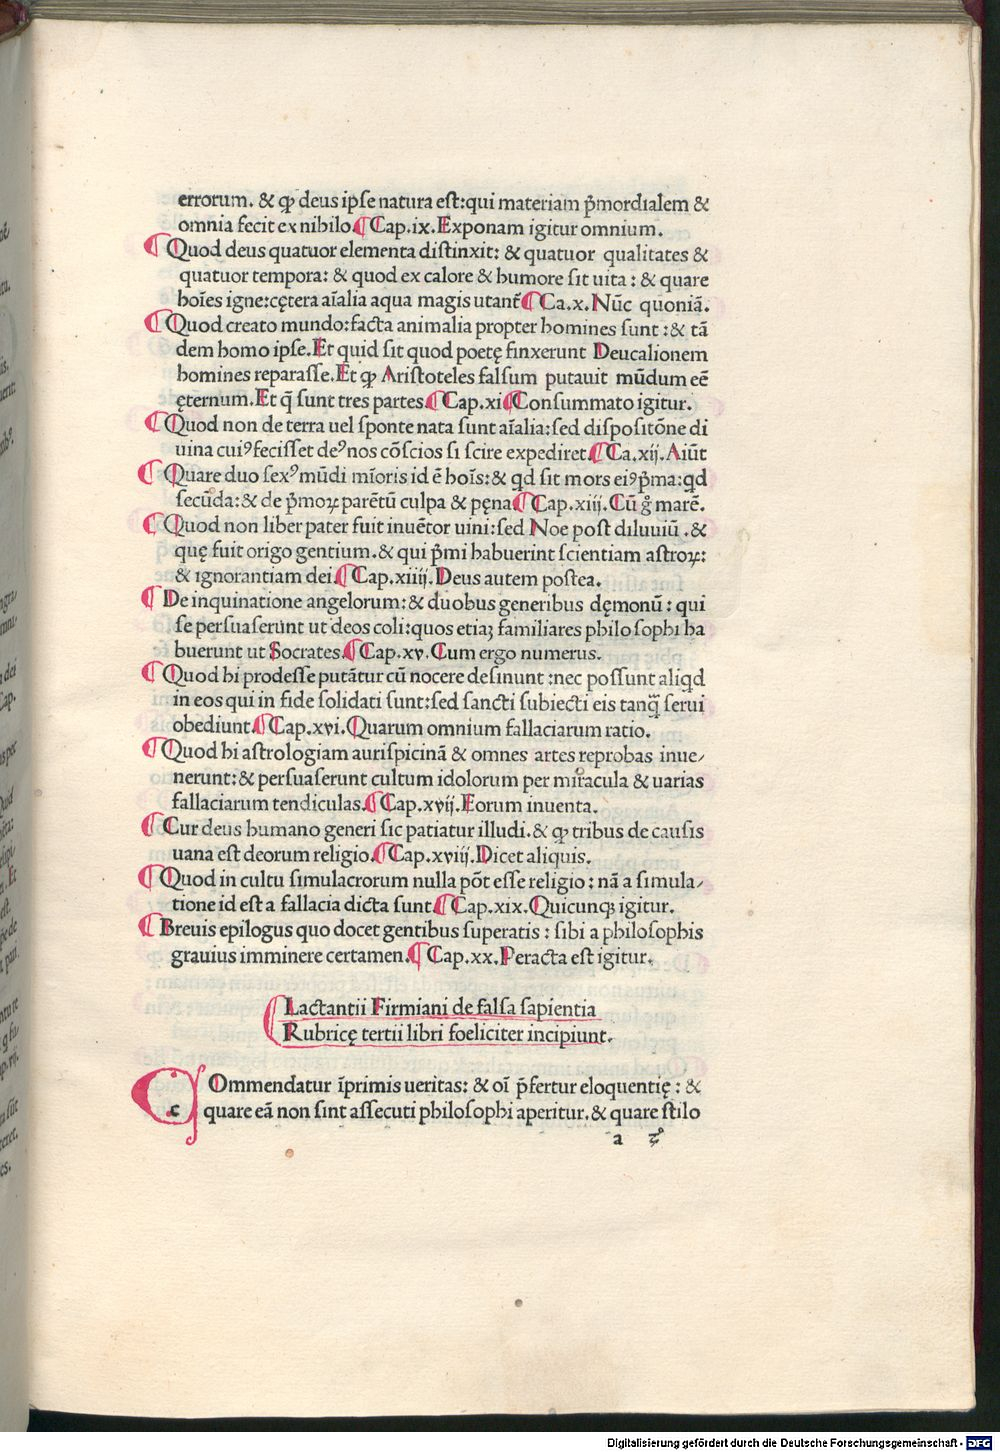 errorum. & ꝙ deus ipse natura est:qui materiam p̄mordialem &
omnia fecit ex nihilo.¶Cap.ix.Exponam igitur omnium.
¶Quod deus quatuor elementa distinxit: & quatuor qualitates &
quatuor tempora: & quod ex calore & humore sit uita : & quare
hoīes igne:cętera aīalia aqua magis utant̄¶Ca.x.Nūc quoniā.
¶Quod creato mundo:facta animalia propter homines sunt :& tā
dem homo ipse.Et quid sit quod poetę finxerunt Deucalionem
homines reparasse.Et ꝙ Aristoteles falsum putauit mūdum eē
ęternum.Et q̄ sunt tres partes.¶Cap.xi¶Consummato igitur.
¶Quod non de terra uel sponte nata sunt aīalia:sed dispositōne di
uina cuiꝰfecisset deꝰnos cōscios si scire expediret.¶Ca.xij.Aiūt
¶Quare duo sexꝰmūdi mīoris id ē hoīs:& qd sit mors eiꝰp̄ma:qd
secūda:& de p̄moꝝ parētū culpa & pęna¶Cap.xiij.Cū gͦ marē.
¶Quod non liber pater fuit inuētor uini:sed Noe post diluuiū .&
quę fuit origo gentium.& qui p̄mi habuerint scientiam astroꝝ:
& ignorantiam dei.¶Cap.xiiij.Deus autem postea.
¶De inquinatione angelorum:& duobus generibus dęmonū : qui
se persuaserunt ut deos coli:quos etiaꝫ familiares philosophi ha
buerunt ut Socrates.¶Cap.xv.Cum ergo numerus.
¶Quod hi prodesse putātur cū nocere desinunt :nec possunt aliqd
in eos qui in fide solidati sunt:sed sancti subiecti eis tanq̄ serui
obediunt.¶Cap.xvi.Quarum omnium fallaciarum ratio.
¶Quod hi astrologiam aurispicinā & omnes artes reprobas inue⸗
nerunt:& persuaserunt cultum idolorum per miracula & uarias
fallaciarum tendiculas.¶Cap.xvij.Eorum inuenta.
¶Cur deus humano generi sic patiatur illudi.& ꝙ tribus de causis
uana est deorum religio.¶Cap.xviij.Dicet aliquis.
¶Quod in cultu simulacrorum nulla pōt esse religio : nā a simula⸗
tione id est a fallacia dicta sunt.¶Cap.xix.Quicunqꝫ igitur.
¶Breuis epilogus quo docet gentibus superatis : sibi a philosophis
grauius imminere certamen.¶Cap.xx.Peracta est igitur.
¶Lactantii Firmiani de falsa sapientia
Rubricę tertii libri foeliciter incipiunt.
COmmendatur īprimis ueritas: & oī p̄fertur eloquentię : &
quare eā non sint assecuti philosophi aperitur.& quare stilo
a
Digitalisierung gefördert durch die Deutsche Forschungsgemeinschaft - DFG